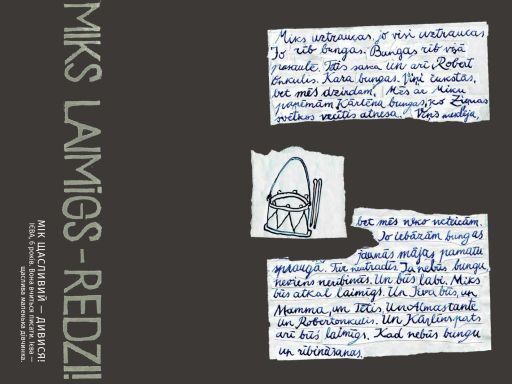 MIKS LAIMĪGS – REDZI!
МІК ЩАСЛИВИЙ – ДИВИСЯ!
ІЄВА, 6 років. Вона вчиться писати. Ієва —
щаслива маленька дівчинка.
Miks uztraucas, jo visi uztraucas,
Jo rīb bungas. Bungas rīb visā
pasaulē. Tētis saka Un arī Robert
onkulis. Kara bungas. Viņi čukstās,
bet mēs dzirdam. Mēs ar Miku
paņēmām Kārlēna bungas, ko Ziemas
svētkos vecītis atnesa. Viņš meklēja,
bet mēs neko neteicām.
Jo iebāzām bungas
jaunās mājas pamatu
spraugā. Tur neatradīs Ja nebūs bungu,
neviens neribinās. Un būs labi. Miks
būs atkal laimīgs. Un Ieva būs, un
Mamma, un Tētis. Un Almastante
un Robertonkulis. Un Kārlēnpats
arī būs laimīgs. Kad nebūs bungu
un rībināšanas.